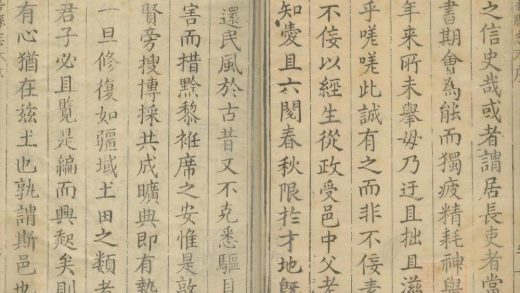 之信史哉或者謂居長吏者當
書期會為能而獨疲精耗神與
年来所未舉毋乃迂且拙且滋
乎嘵嘵此誠有之而非不佞
不佞以經生從政受邑中父老
知愛且六閱春秋限於才地既
還民風於古昔又不克悉驅目
害而措黔黎袵席之安惟是敦
賢旁搜博採共成曠典即有
一旦修復如疆域土田之類者
君子必且覽是編而興矣則
有心猶在茲土也孰謂斯邑也